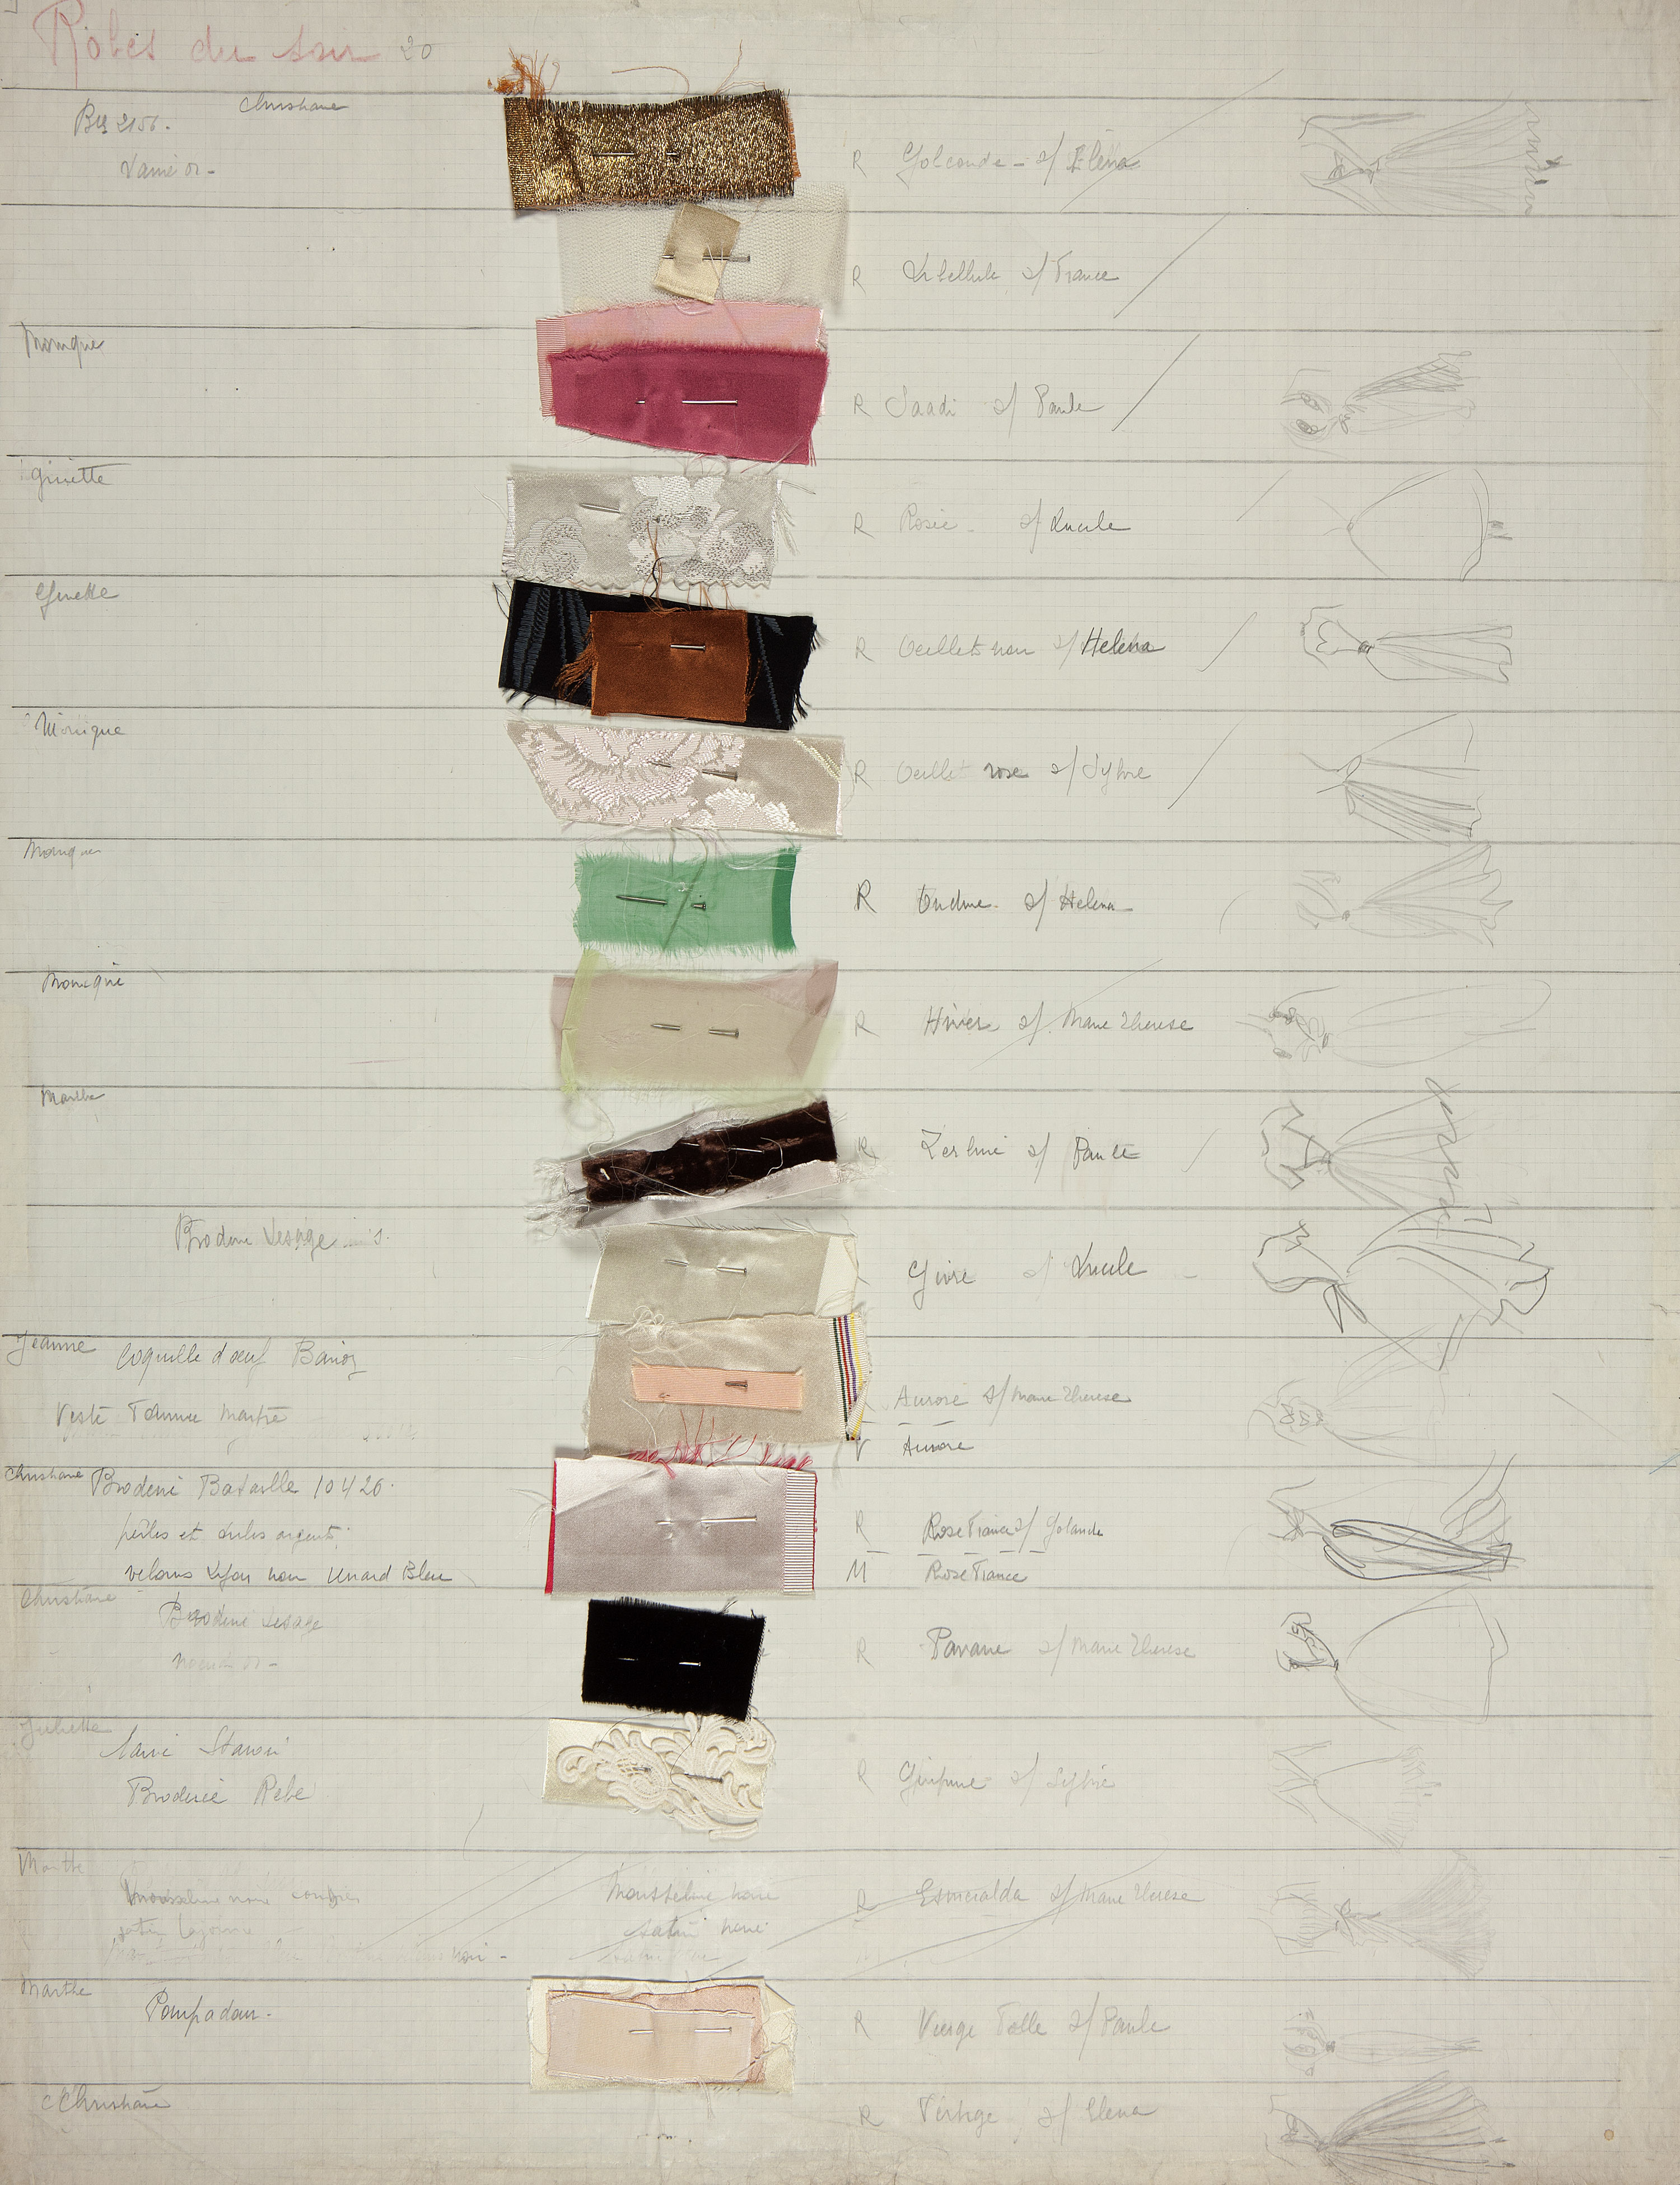 Robes du soir 20
Christiane
2156.
Lamé or -
R Golconde - s/ Elena
R Libellule s/ France
Monique
R Saadi s/ Paule
Ginette
R Rosée - s/ Lucile
Ginette
R Oeillet noir s/ Helena
Monique
R Oeillet rose s/ Sylvie
Monique
R Ondine - s/ Helena
Monique
R Hiver s/ Marie Therese
Marthe
R Zerline s/ Paule
Broderie Lesage
Givre s/ Lucile
Jeanne Coquille d'oeuf
Aurore s/ Marie Therese
Veste
Aurore
Christiane Broderie Bataille 10426.
perles et tubes argents
R Rose France s/ Yolande
velours Lyon noir renard Bleu
M Rose France
Christiane
Broderie Lesage
noeuds or -
R Pavane s/ Marie Therese
Juliette
Broderie Rébé
R Guipure s/ Sylvie
Marthe
Mousseline noire
Mousseline noire
R Esmeralda s/ Marie Therese
satin noir
Marthe
Pompadour -
R Vierge Folle s/ Paule
Christiane
R Vertige s/ Elena